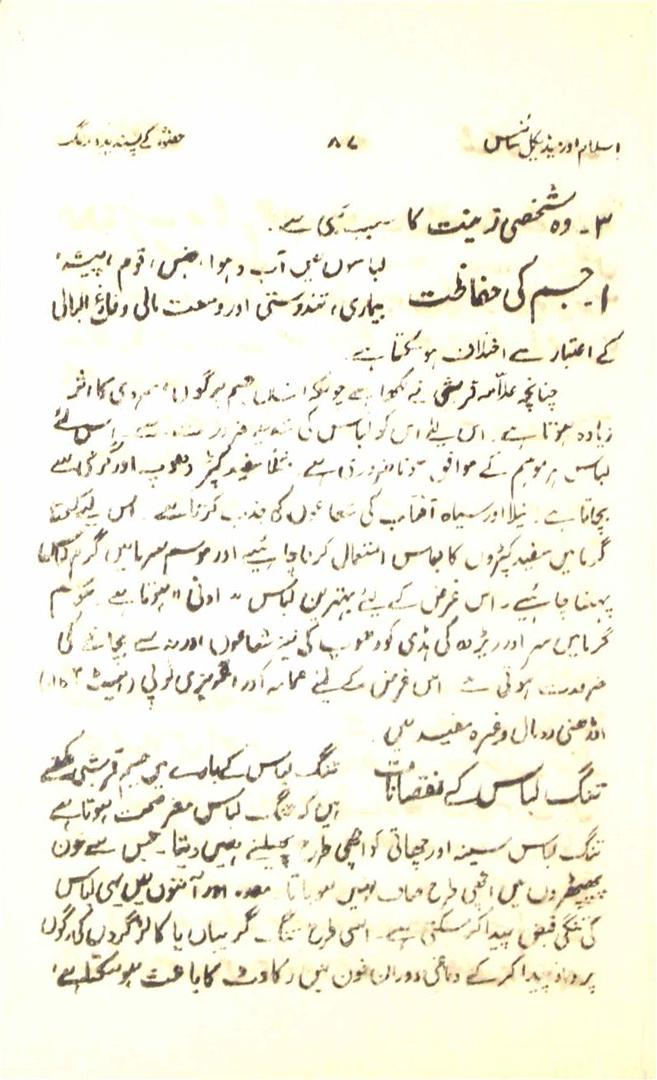 اسلام اور میڈیکل سائنس ۸۷ حضورؐ کے پسندیدہ رنگ
۳۔ وہ شخصی زینت کا سبب بھی ہے۔
۱۔ جسم کی حفاظت
لباسوں میں آب و ہوا، جنس، قوم، پیشہ،
بیماری، تندرستی اور وسعت مالی و فارغ البالی
کے اعتبار سے اختلاف ہو سکتا ہے۔
چنانچہ علامہ قرشی نے لکھا ہے چونکہ انسانی جسم پر گرمی سردی کا اثر
زیادہ ہوتا ہے۔ اس لئے اس کو لباس کی ضرورت ہے۔ اس لئے
لباس ہر موسم کے موافق ہونا ضروری ہے مثلاً سفید کپڑا دھوپ اور گرمی سے
بچاتا ہے۔ نیلا اور سیاہ آفتاب کی شعاعوں کو جذب کرتا ہے۔ اس لئے
گرما میں سفید کپڑوں کا لباس استعمال کرنا چاہئیے اور موسم سرما میں گرم لباس
پہننا چاہئیے۔ اس غرض کے لیئے بہترین لباس "اونی" ہوتا ہے۔ موسم
گرما میں سر اور ریڑھ کی ہڈی کو دھوپ کی تیز شعاعوں اور لو سے بچانے کی
ضرورت ہوتی ہے اس غرض کے لیئے عمامہ اور انگریزی ٹوپی (ہیٹ)
اوڑھنی رومال وغیرہ مفید ہیں۔
تنگ لباس کے نقصانات
تنگ لباس کے بارے میں حکیم قرشی لکھتے
ہیں کہ تنگ لباس مضر صحت ہوتا ہے
تنگ لباس سینہ اور چھاتی کو اچھی طرح پھیلنے نہیں دیتا۔ جس سے خون
پھیپھڑوں میں اچھی طرح صاف نہیں ہو پاتا۔ معدہ اور آنتوں میں بھی لباس
کی تنگی قبض پیدا کر سکتی ہے۔ اسی طرح تنگ گریبان یا کالر گردن کی رگوں
پر دباؤ پیدا کر کے دماغی دوران خون میں رکاوٹ کا باعث ہو سکتا ہے،